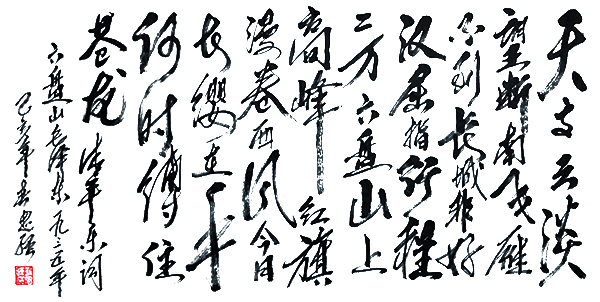 天高云淡
望断南飞雁
不到长城非好
汉屈指行程
二万六盘山上
高峰红旗
漫卷西风今日
长缨在手
何时缚住
苍龙 清平乐词
六盘山毛泽东一九三五年
己亥年